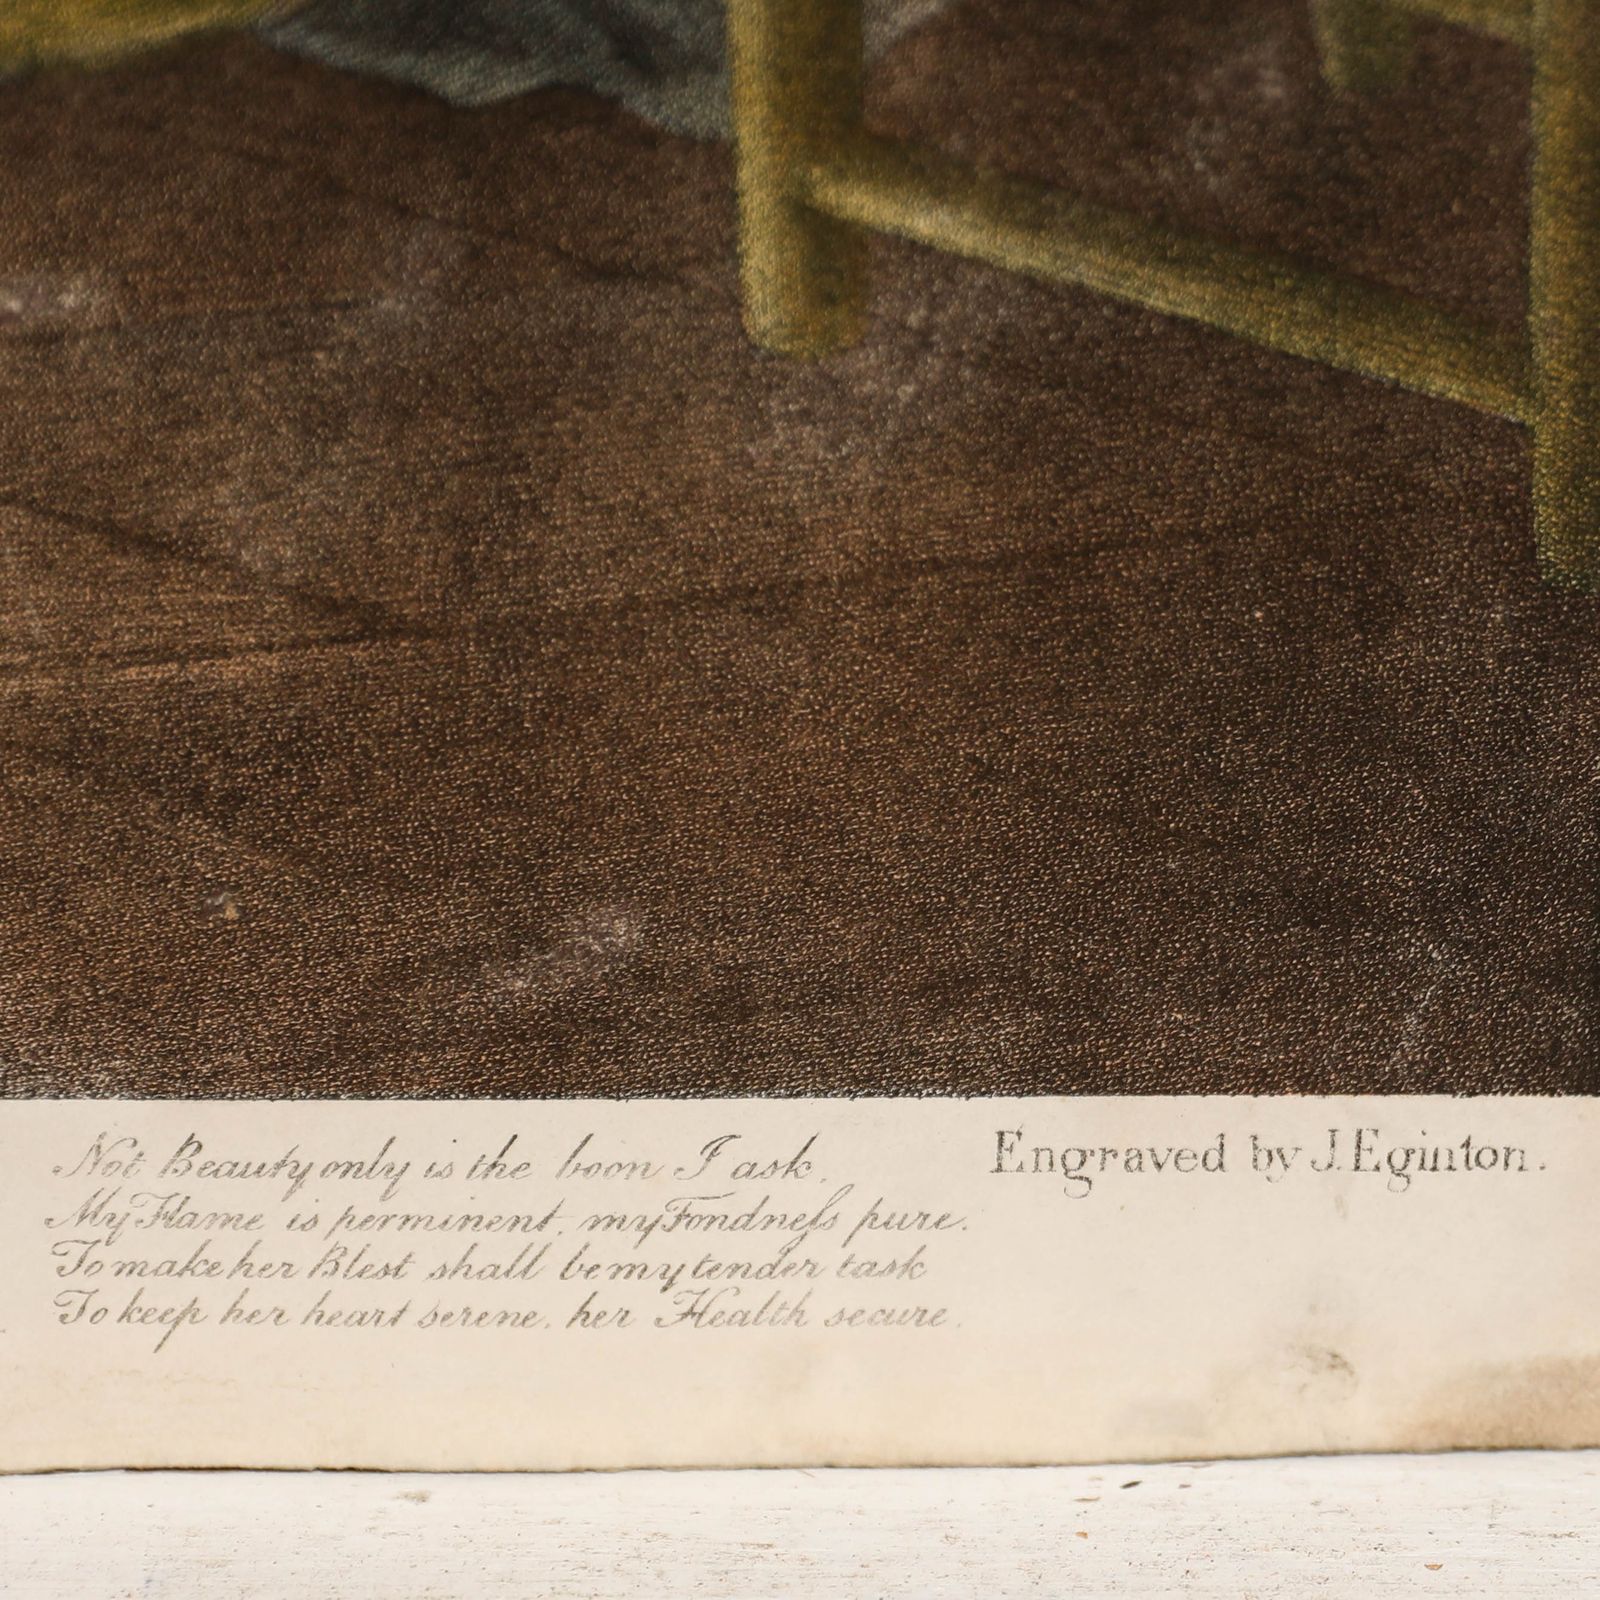 Not Beauty only is the boon I ask,
My Flame is perminent, my Fondneſs pure.
To make her Blest shall be my tender task
To keep her heart serene, her Health secure.
Engraved by J. Eginton.